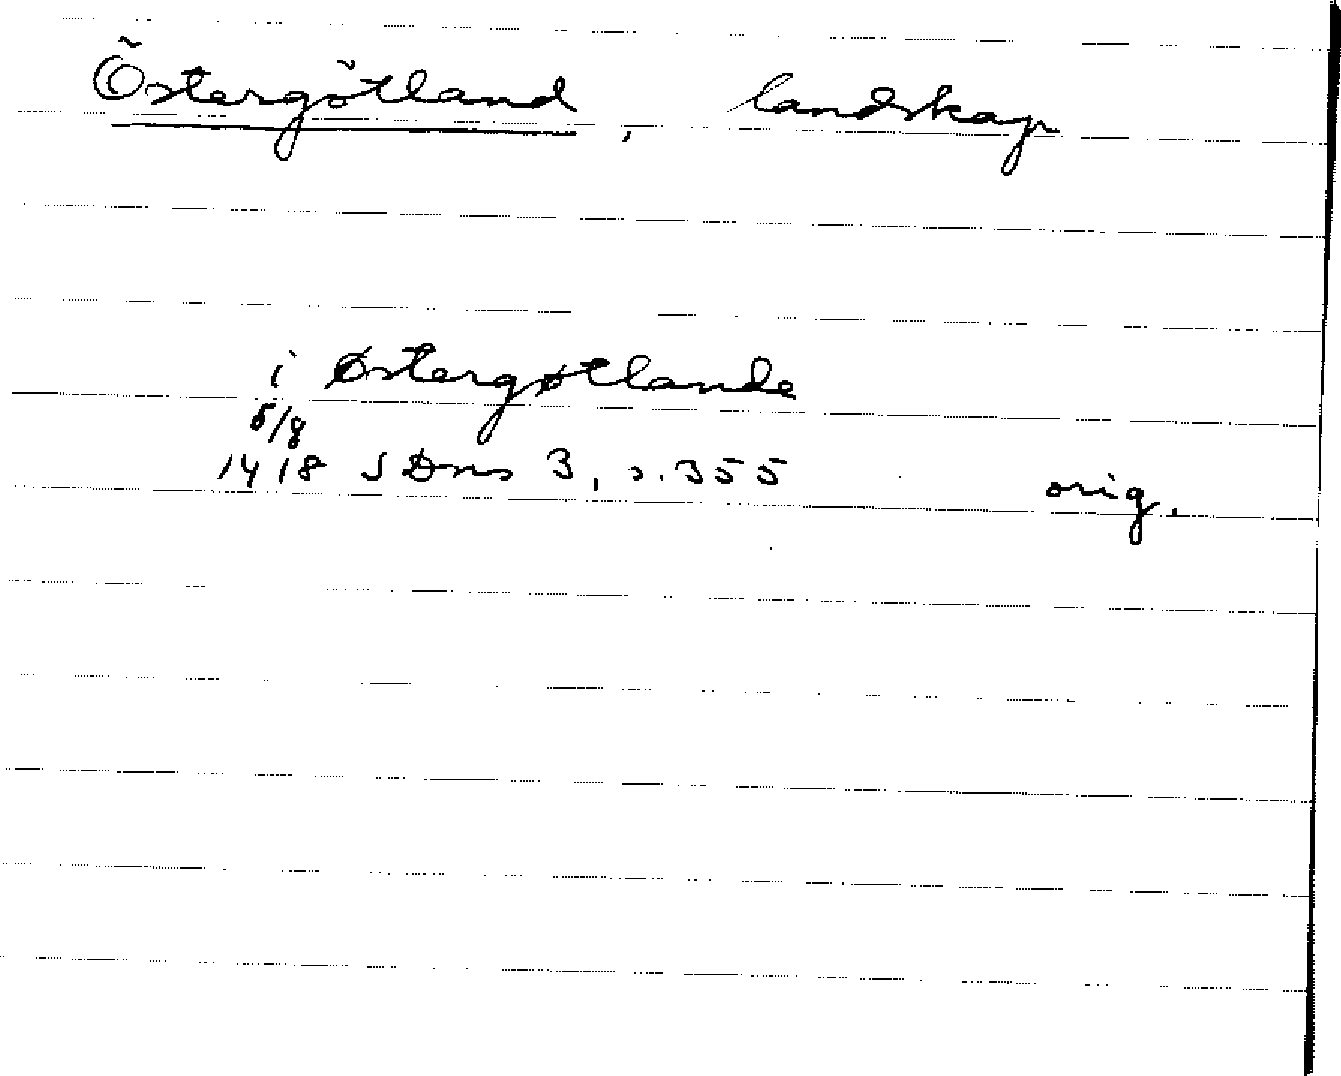 Östergötland, landskap
i Østergøtlande
5/8
1418 SDns 3, s. 355 orig.